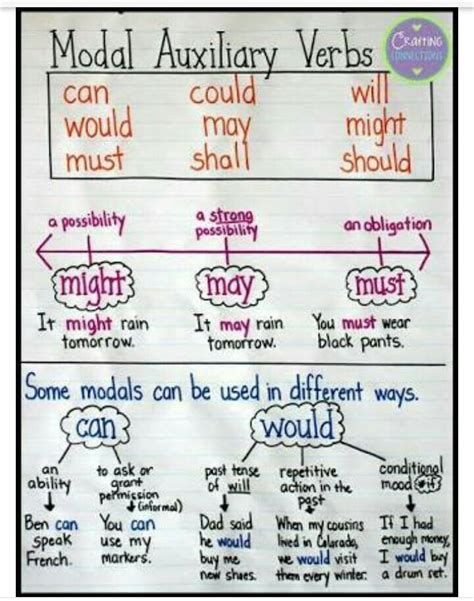 Modal Auxiliary Verbs
CRAFTING
CONNECTIONS
can could will
would may might
must shall should
a possibility
a strong
possibility
an obligation
might
may
must
It might rain
tomorrow.
It may rain
tomorrow.
You must wear
black pants.
Some modals can be used in different ways.
can
would
an
ability
to ask or
grant
permission
(informal)
past tense
of will
repetitive
action in the
past
conditional
mood *if
Ben can
speak
French.
You can
use my
markers.
Dad said
he would
buy me
new shoes.
When my cousins
lived in Colorado,
we would visit
them every winter.
If I had
enough money,
I would buy
a drum set.